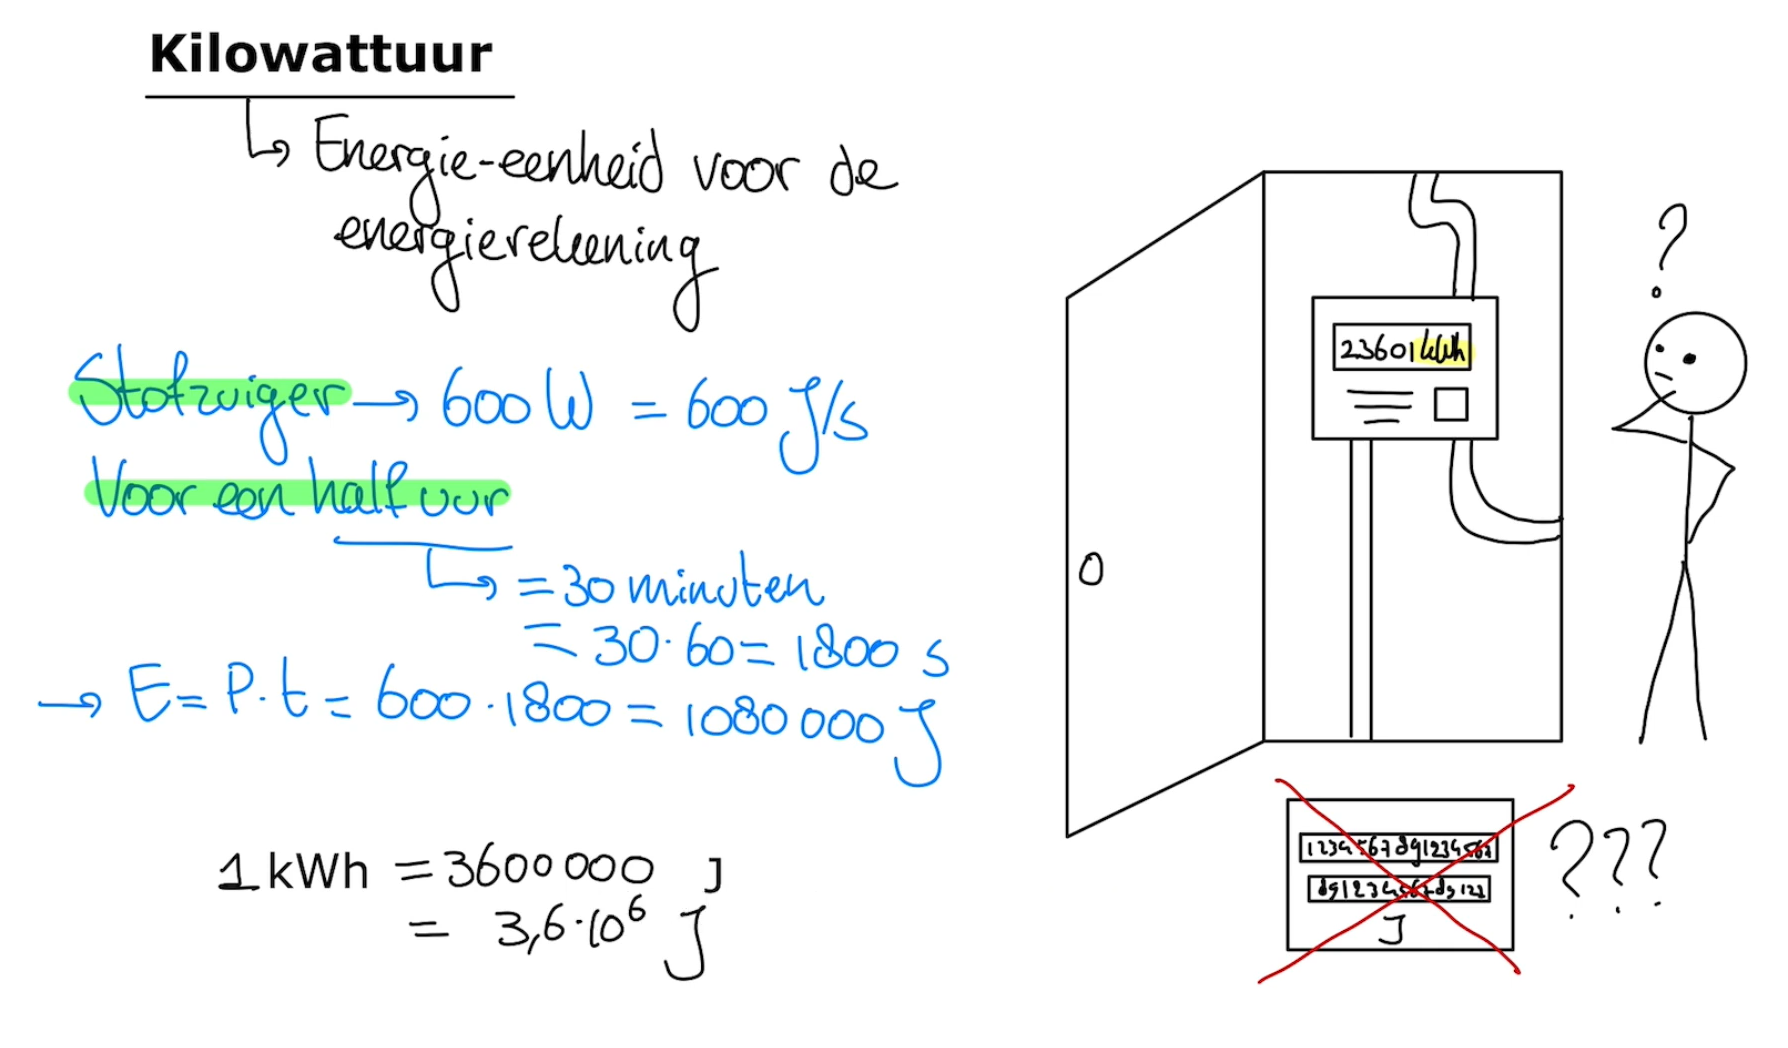 Kilowattuur
↳ Energie-eenheid voor de
energierekening
Stofzuiger → 600 W = 600 J/s
Voor een half uur
↳ = 30 minuten
= 30·60 = 1800 s
→ E = P·t = 600·1800 = 1080 000 J
1 kWh = 3600 000 J
= 3,6·10⁶ J
?
23601 kWh
O
1234567891234567
89123456789123
J
???